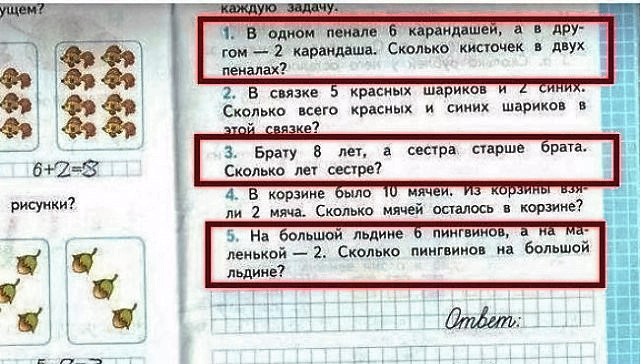 ущем?
6+2=8
рисунки?
каждую задачу.
1. В одном пенале 6 карандашей, а в дру-
гом — 2 карандаша. Сколько кисточек в двух
пеналах?
2. В связке 5 красных шариков и 2 синих.
Сколько всего красных и синих шариков в
этой связке?
3. Брату 8 лет, а сестра старше брата.
Сколько лет сестре?
4. В корзине было 10 мячей. Из корзины взя-
ли 2 мяча. Сколько мячей осталось в корзине?
5. На большой льдине 6 пингвинов, а на ма-
ленькой — 2. Сколько пингвинов на большой
льдине?
Ответ: